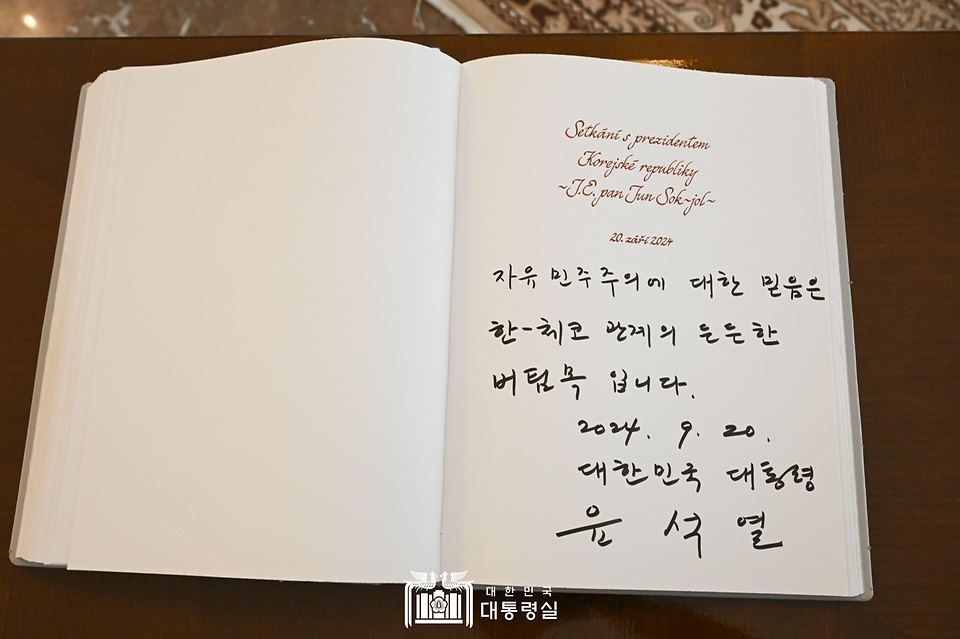 Setkání s prezidentem
Korejské republiky
~J.E. pan Jun Sok-jol~
20. září 2024
자유 민주주의에 대한 믿음은
한-체코 관계의 든든한
버팀목 입니다.
2024. 9. 20.
대한민국 대통령
윤 석 열
대한민국
대통령실